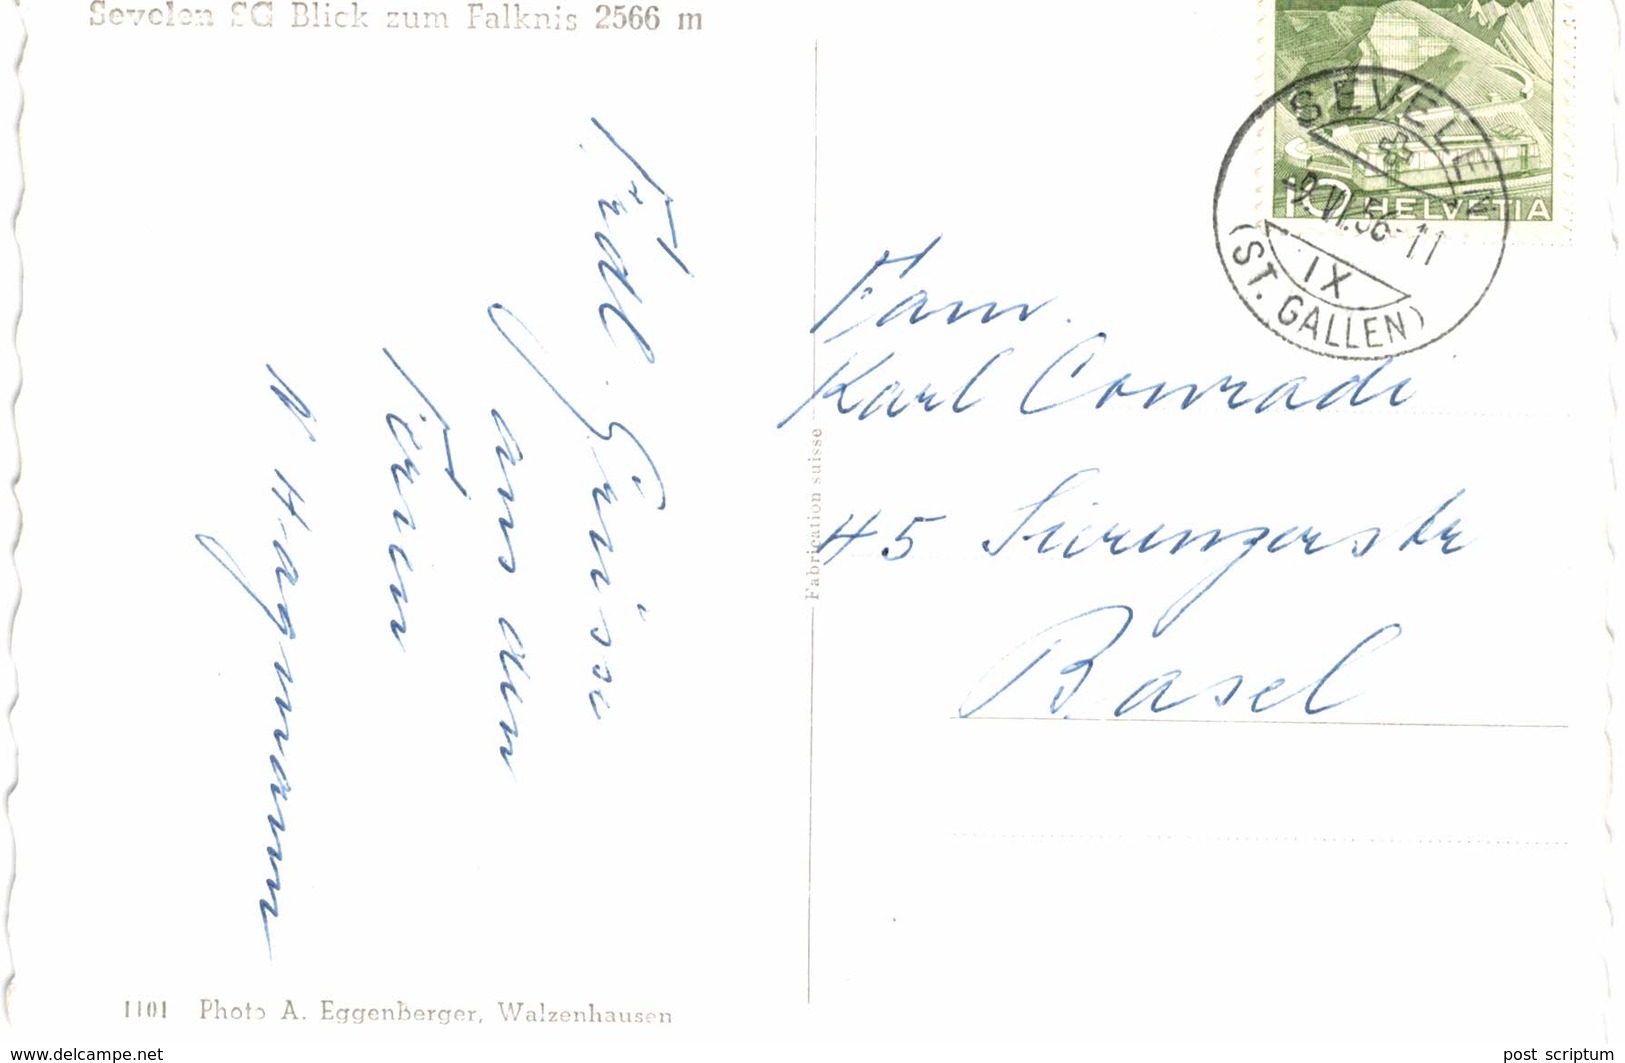 Sevelen SG Blick zum Falknis 2566 m
Frdl. Grüsse
aus den
Ferien
Hagmann
1101 Photo A. Eggenberger, Walzenhausen
Fabrication suisse
SEVELEN
-9.VI.56-11
IX
(ST. GALLEN)
10 HELVETIA
Fam.
Karl Conradi
45 Sierenzerstr
Basel
www.delcampe.net
post_scriptum